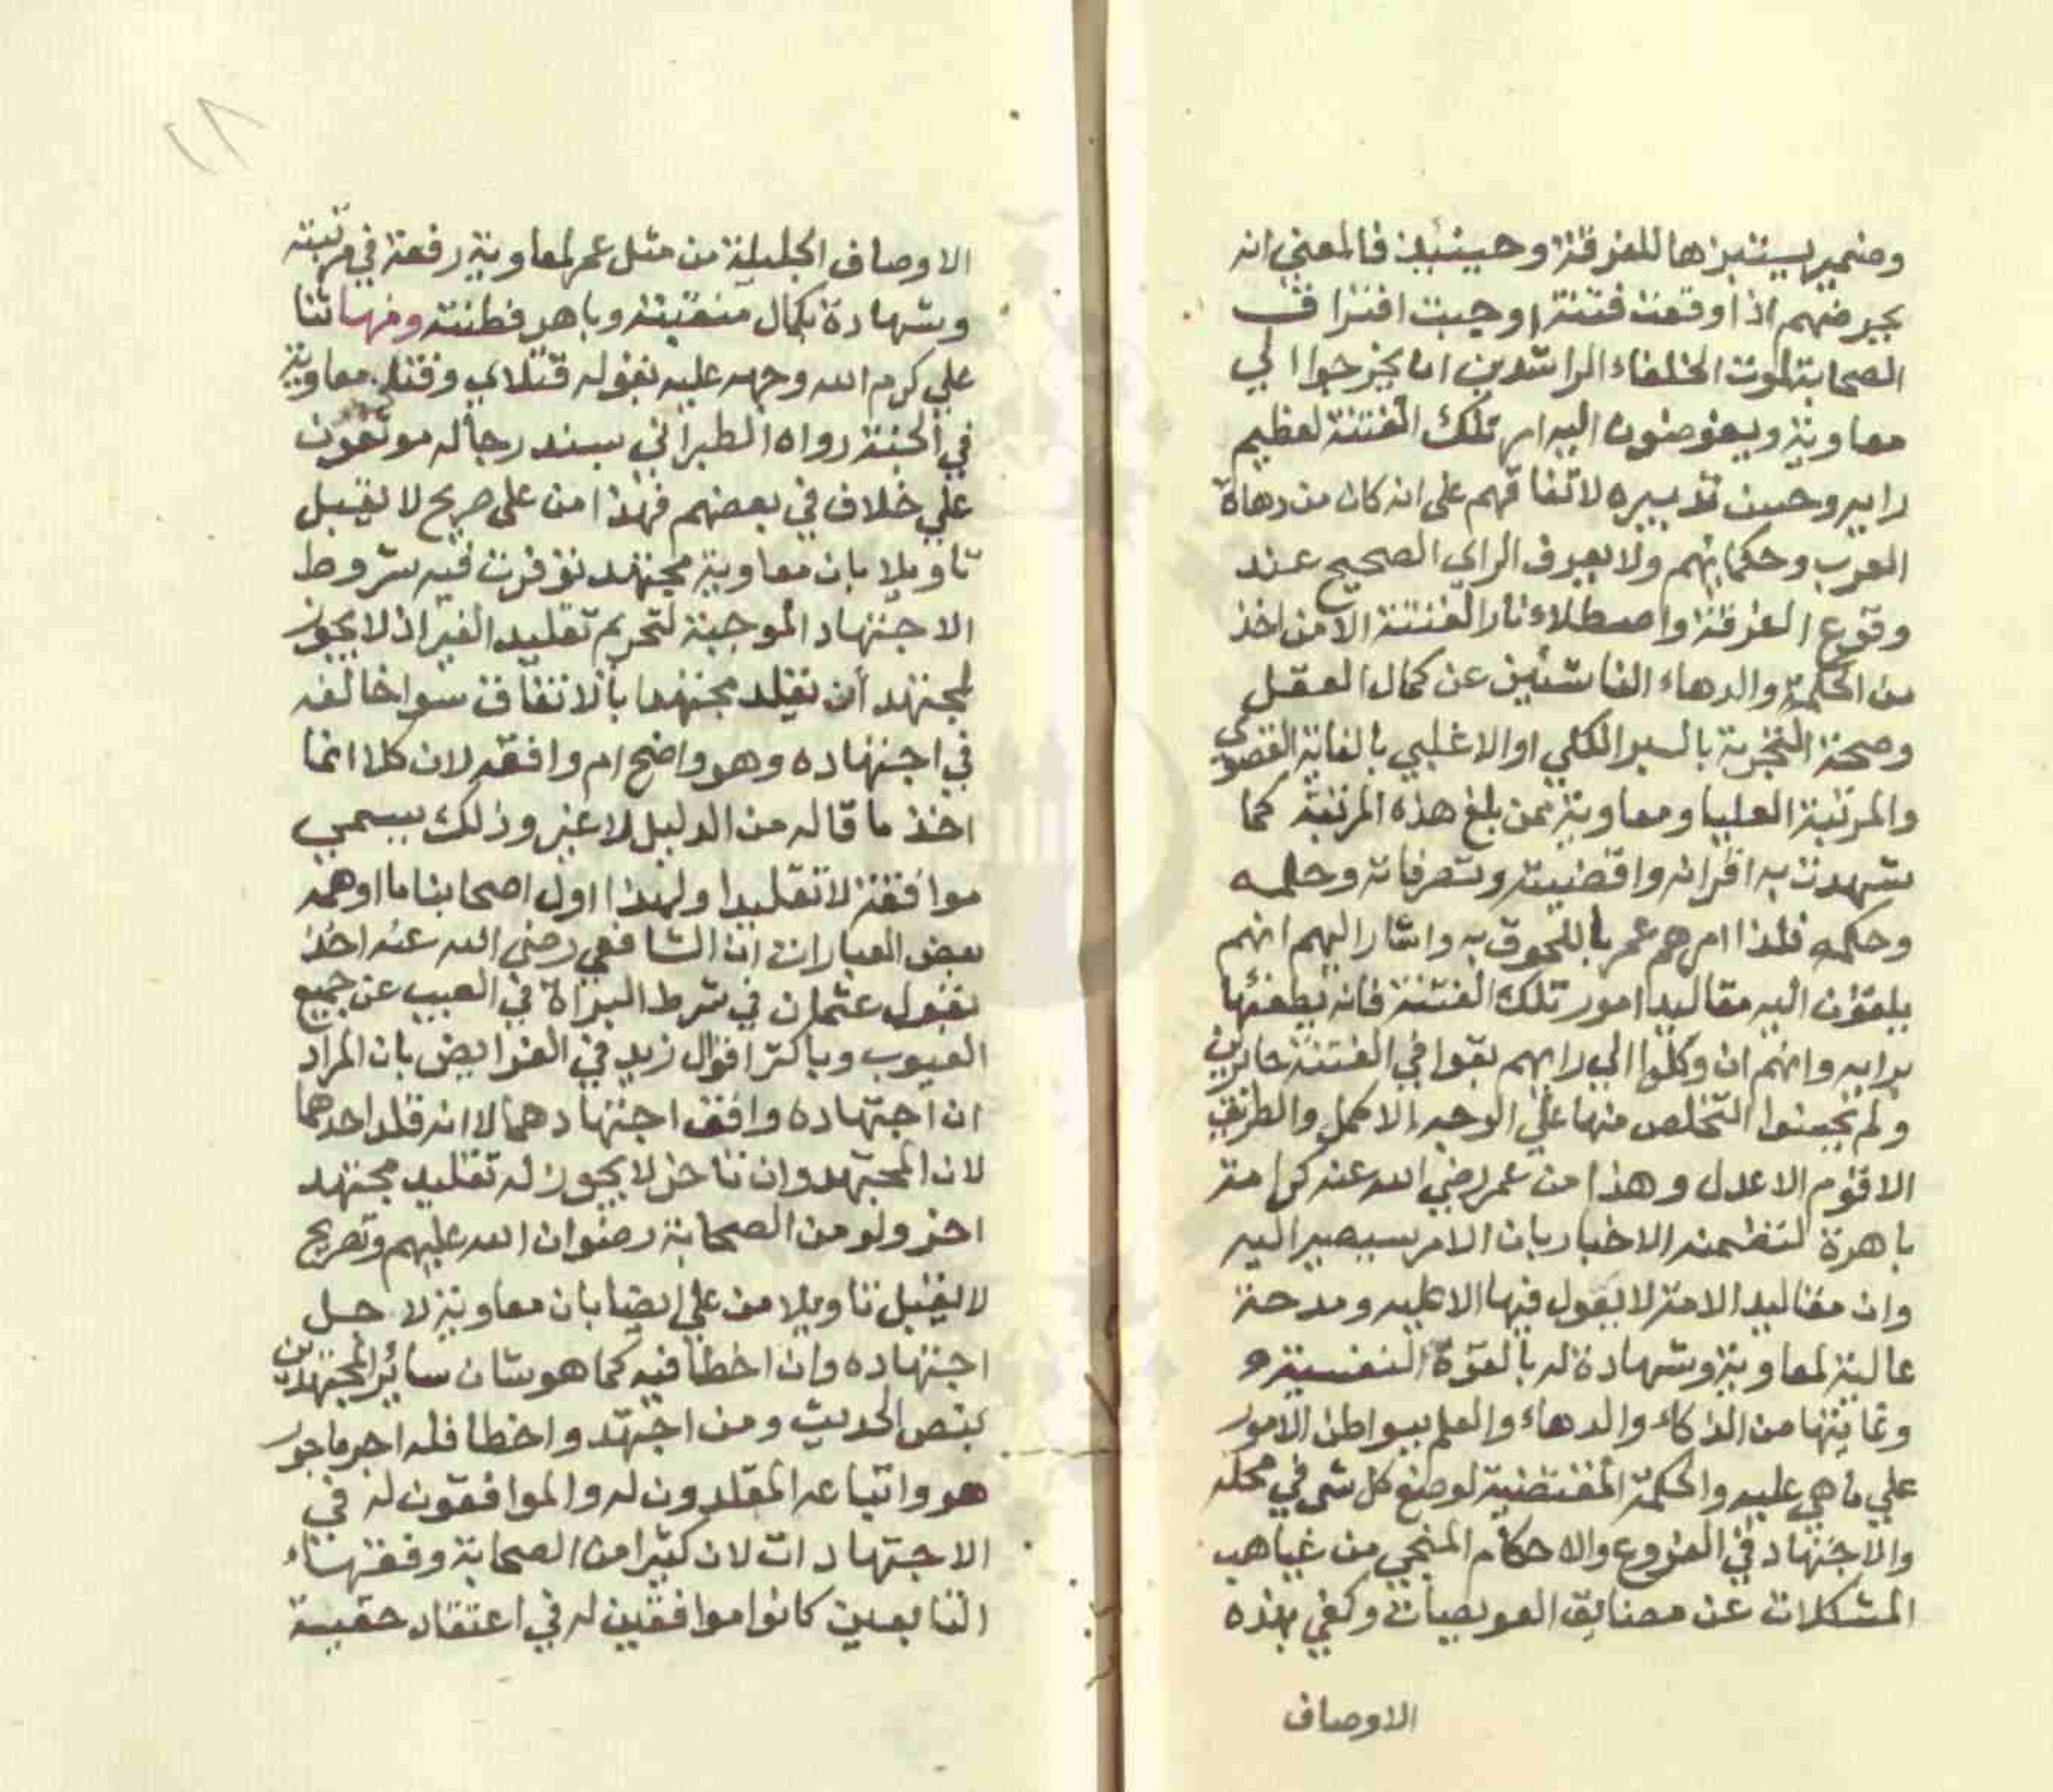 وضمير يستبزها للفرقة وحينئذ فالمعني انه
يجيرضهم اذا وقعت فتنة اوجبت افتراق
الصحابة لموت الخلفاء الراشدين ان يخرجوا الي
معاوية ويفوضون اليه امر تلك الفتنة لعظيم
رايه وحسن تدبيره لاتفاقهم على انه كان من دهاة
العرب وحكمايهم ولا يعرف الراي الصحيح عند
وقوع الفرقة واصطلاء نار الفتنة الا من اخذ
من الحكمة والدهاء الناشئين عن كمال العقل
وصحة التجربة بالسبر الكلي او الاغلبي بالغاية القصوى
والمرتبة العليا ومعاوية ممن بلغ هذه المرتبة كما
شهدت به اقرانه واقضيته وتصرفاته وحلمه
وحكمه فلذا امرهم عمر باللحوق به واشار اليهم انهم
يلقون اليه مقاليد امور تلك الفتنة فانه يطفئها
برايه وانهم ان وكلوا الي رايهم بقوا في الفتنة حايرين
ولم يحسنوا التخلص منها علي الوجه الاكمل والطريق
الاقوم الاعدل وهذا من عمر رضي الله عنه كرامة
باهرة لتضمنه الاخبار بان الامر سيصير اليه
وان مقاليد الامة لا يعول فيها الا عليه ومدحة
عالية لمعاوية وشهادة له بالقوة النفسية و
وغايتها من الذكاء والدهاء والعلم ببواطن الامور
علي ما هي عليه والحكمة المقتضية لوضع كل شي في محله
والاجتهاد في الفروع والاحكام المنجي من غياهب
المشكلات عن مضايق العويصات وكفي بهذه
الاوصاف
٢٨
الاوصاف الجليلة من مثل عمر لمعاوية رفعة في مرتبته
وشهادة بكمال منقبته وباهر فطنته ومنها ثنا
علي كرم الله وجهه عليه بقوله قتلاي وقتلى معاوية
في الجنة رواه الطبراني بسند رجاله موثقون
علي خلاف في بعضهم فهذا من على صريح لا يقبل
تاويلا بان معاوية مجتهد توفرت فيه شروط
الاجتهاد الموجبة لتحريم تقليد الغير اذ لا يجوز
لمجتهد أن يقلد مجتهدا بالاتفاق سوا خالفه
في اجتهاده وهو واضح ام وافقه لان كلا انما
اخذ ما قاله من الدليل لا غير وذلك يسمي
موافقة لا تقليدا ولهذا اول اصحابنا ما اوهمه
بعض العبارات ان الشافعي رضي الله عنه اخذ
بقول عثمان في شرط البراة في العيب عن جميع
العيوب وباكثر اقوال زيد في الفرايض بان المراد
ان اجتهاده وافق اجتهادهما لا انه قلد احدهما
لان المجتهد وان تاخر لا يجوز له تقليد مجتهد
اخر ولو من الصحابة رضوان الله عليهم وتصريح
لا يقبل تاويلا من علي ايضا بان معاوية لاجل
اجتهاده وان اخطا فيه كما هو شان سائر المجتهدين
بنص الحديث ومن اجتهد واخطا فله اجر ماجور
هو واتباعه المقلدون له والموافقون له في
الاجتهادات لان كثيرا من الصحابة وفقهاء
التابعين كانوا موافقين له في اعتقاد حقية